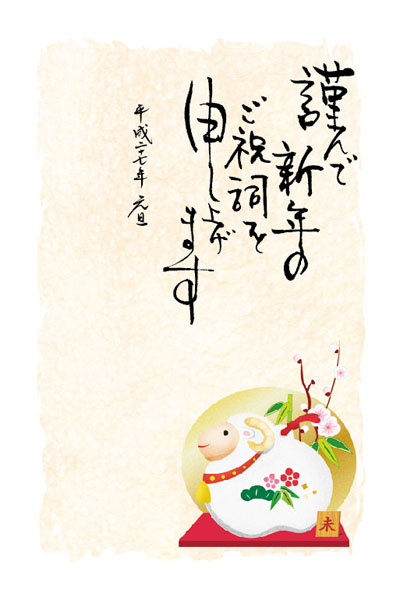 謹んで
新年の
ご祝詞を
申し上げ
ます
平成二十七年 元旦
未